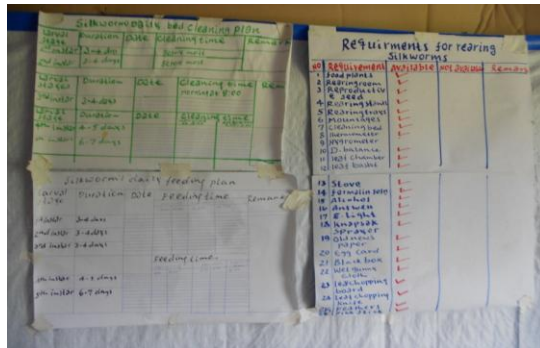 Silkworms Daily bed cleaning plan
Larval stage Duration Date Cleaning time Remark
1st instar 3-4 days
2nd instar 3-4
Larval stages Duration Date Cleaning time Rem
3rd instar 3-4 days
Larval stages Duration Date Cleaning time
4th instar 4-5 days
5th instar 6-7 days
Silkworms daily feeding plan
Larval stage Duration Date Feeding time Remark
1st instar 3-4 days
2nd instar 3-4 days
3rd instar 3-4 days
Feeding time
4th instar 4-5 days
5th instar 6-7 days
Requirments for rearing
Silkworms
No Requirement Available Not available Remark
1 food plants
2 Rearing room
3 Reproductive
seed
4 Rearing stands
5 Rearing trays
6 Mountages
7 Cleaning bed
8 thermometer
9 Hygrometer
10 D. balance
11 leaf chamber
12 leaf basket
13 Stove
14 formalin
15 Alcohol
17 E. light
18 Knapsak
Sprayer
19 Old news
paper
20 Egg Card
21 Black box
22
Cloth
23 Leaf chopping
board
24 Leaf chopping
knife
25 Feathers